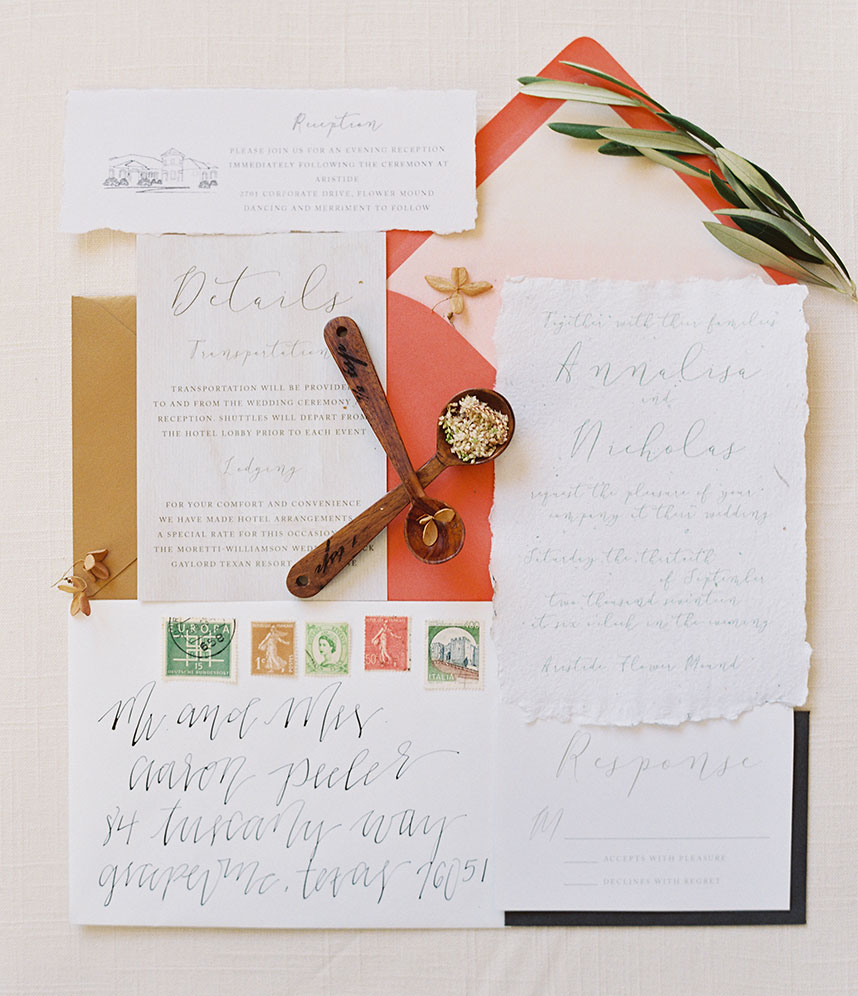 Reception
PLEASE JOIN US FOR AN EVENING RECEPTION
IMMEDIATELY FOLLOWING THE CEREMONY AT
ARISTIDE
2701 CORPORATE DRIVE, FLOWER MOUND
DANCING AND MERRIMENT TO FOLLOW
Details
Transportation
TRANSPORTATION WILL BE PROVIDED
TO AND FROM THE WEDDING CEREMONY
RECEPTION. SHUTTLES WILL DEPART FROM
THE HOTEL LOBBY PRIOR TO EACH EVENT
Lodging
FOR YOUR COMFORT AND CONVENIENCE
WE HAVE MADE HOTEL ARRANGEMENTS
A SPECIAL RATE FOR THIS OCCASION
THE MORETTI-WILLIAMSON
GAYLORD TEXAN RESORT
Together with their families
Annalisa
and
Nicholas
request the pleasure of your
company at their wedding
Saturday the thirtieth
of September
two thousand seventeen
at six o'clock in the evening
Aristide, Flower Mound
EUROPA
15
DEUTSCHE BUNDESPOST
1c
50F
600
ITALIA
Mr. and Mrs.
aaron peeler
84 tuscany way
grapevine, texas 76051
Response
M
ACCEPTS WITH PLEASURE
DECLINES WITH REGRET